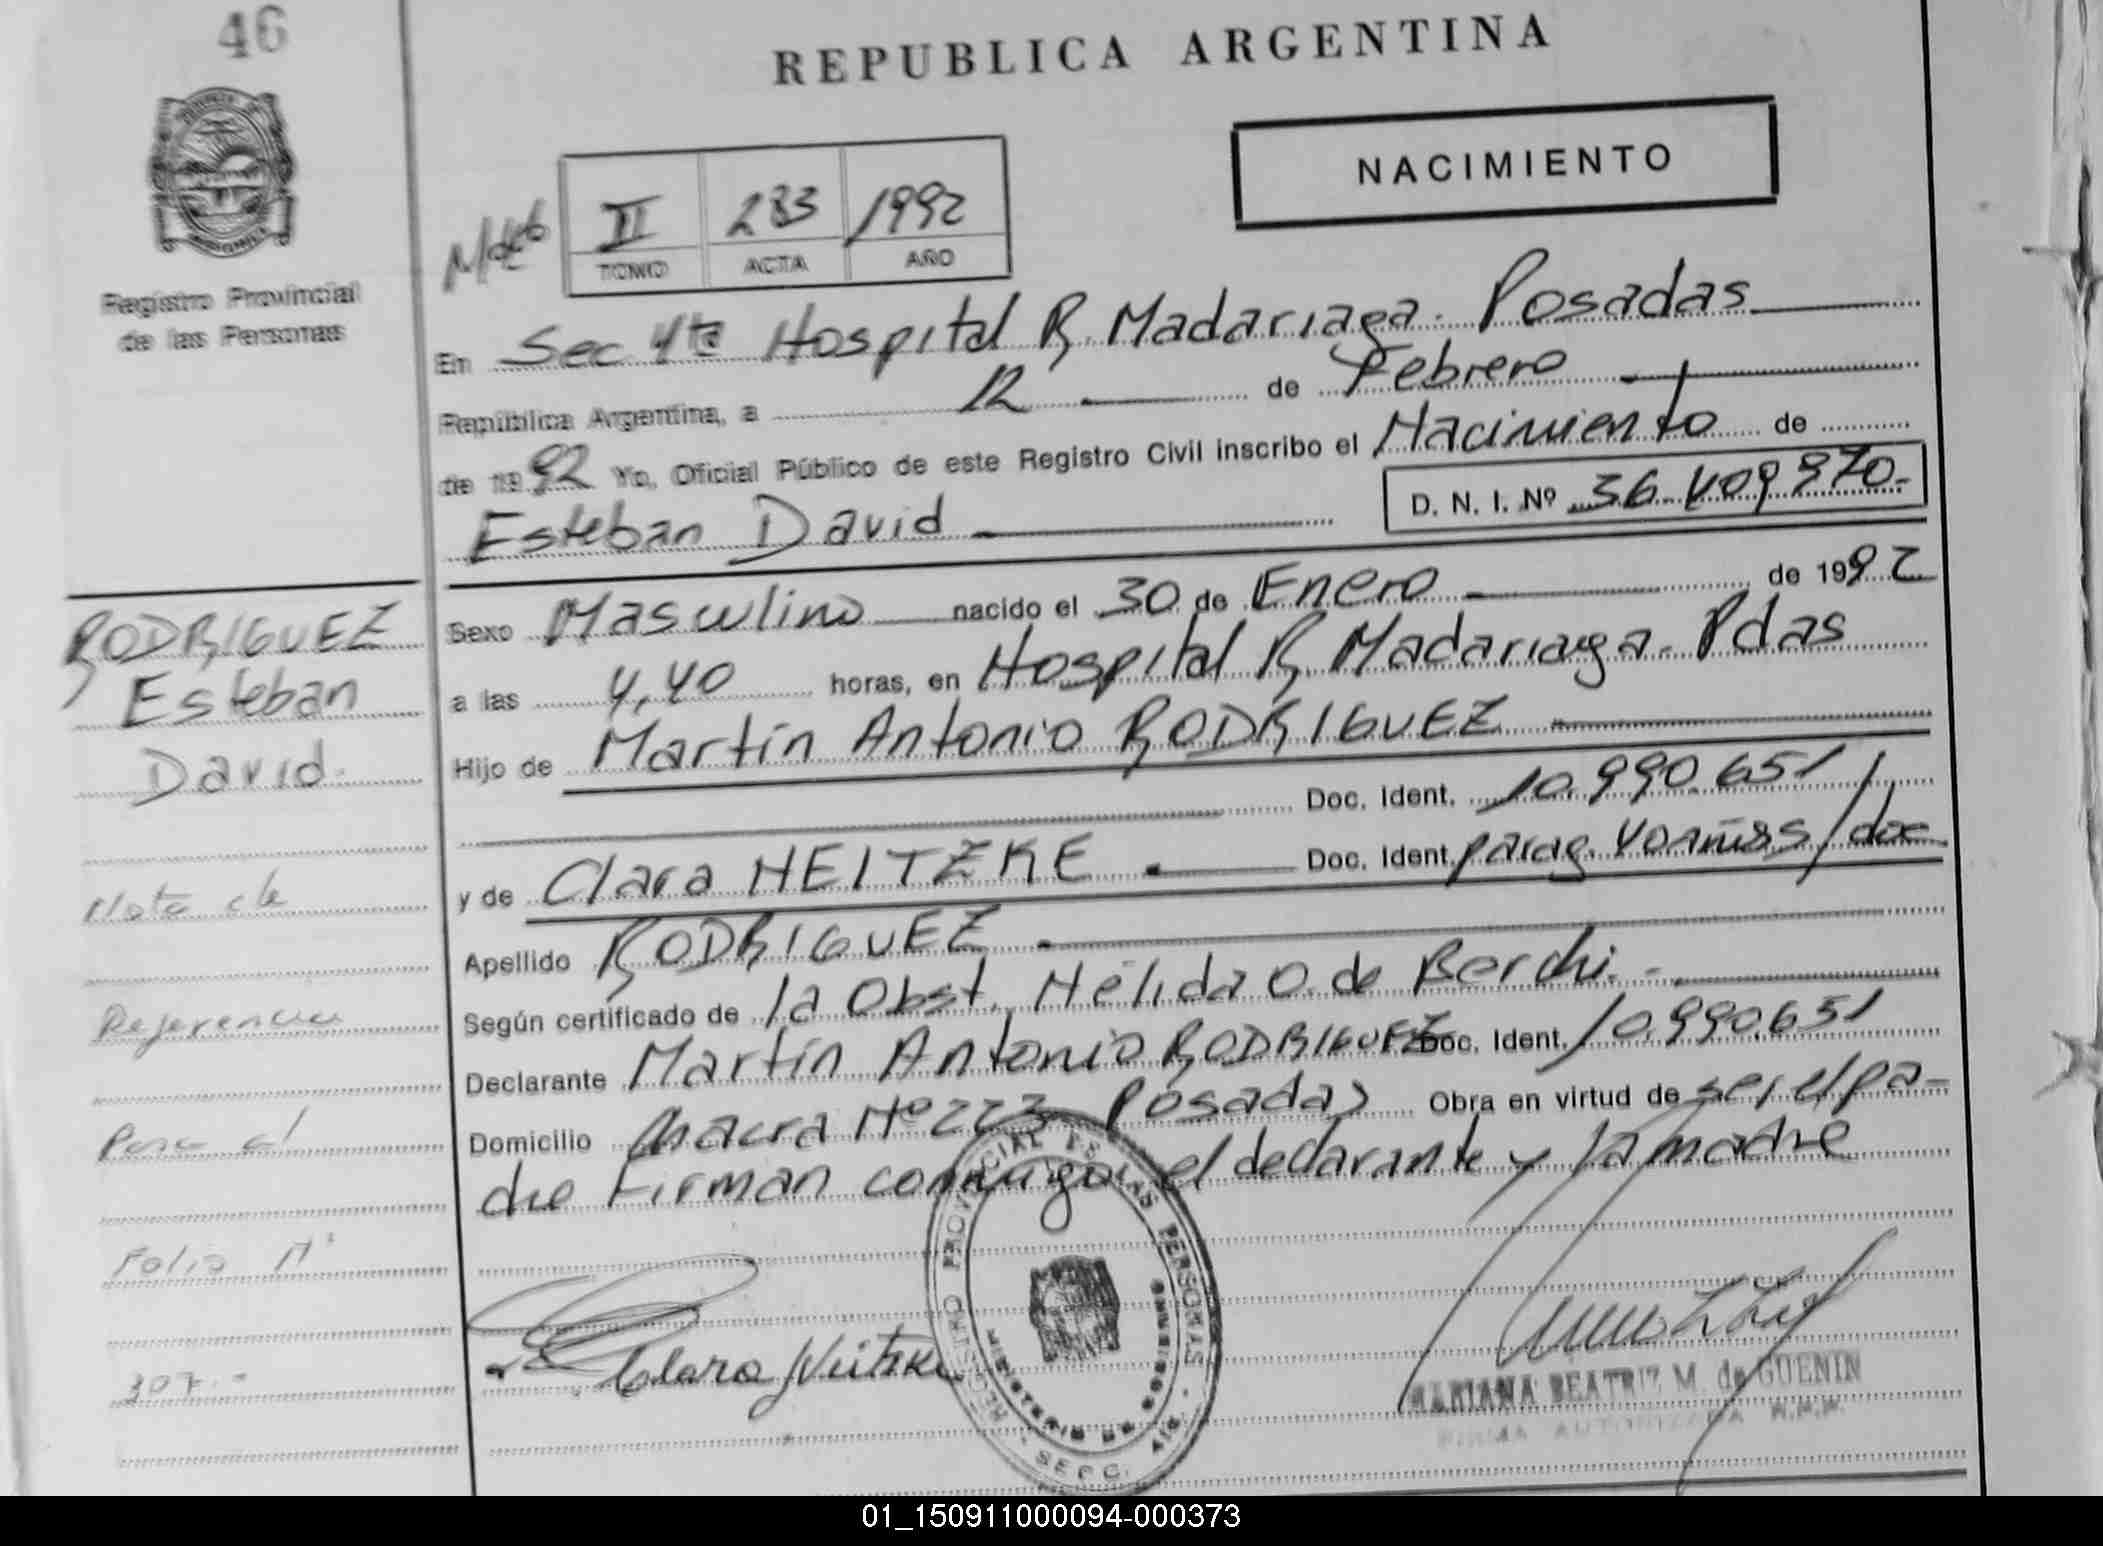 46
REPUBLICA ARGENTINA
NACIMIENTO
II 283 1992
TOMO ACTA AÑO
Registro Provincial
de las Personas
En Sec 4ta Hospital R. Madariaga. Posadas
República Argentina, a 12 de Febrero
de 1992 Yo, Oficial Público de este Registro Civil inscribo el Nacimiento de
Esteban David D. N. I. Nº 36.409970.-
RODRIGUEZ
Esteban
David.
Nota de
Referencia
Folio Nº
307.-
Sexo Masculino nacido el 30 de Enero de 1992
a las 4,40 horas, en Hospital R. Madariaga. Pdas
Hijo de Martín Antonio RODRIGUEZ
Doc. Ident. 10.990.651
y de Clara NEITZKE Doc. Ident. parag. 40 años/doc
Apellido RODRIGUEZ
Según certificado de la Obst. Nélida O. de Berchi.-
Declarante Martín Antonio RODRIGUEZ Doc. Ident. 10.990.651
Domicilio Chacra Nº 223 Posadas Obra en virtud de ser el pa-
dre Firman conmigo el declarante y la madre
REGISTRO PROVINCIAL DE LAS PERSONAS
MINISTERIO DE GOBIERNO
Clara Neitzke
MARIANA BEATRIZ M. de GUENIN
FIRMA AUTORIZADA
01_150911000094-000373